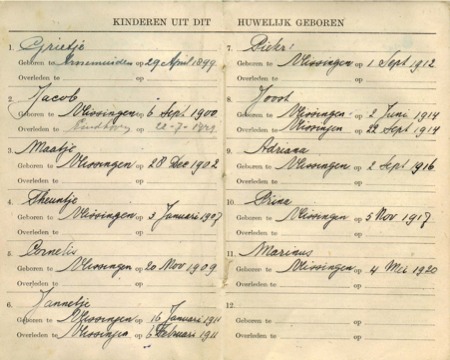 KINDEREN UIT DIT
1. Grietje
Geboren te Arnemuiden op 29 April 1899
Overleden te op
2. Jacob
Geboren te Vlissingen op 6 Sept 1900
Overleden te op 22-7-
3. Maatje
Geboren te Vlissingen op 28 Dec 1902
Overleden te op
4. Theuntje
Geboren te Vlissingen op 3 Januari 1907
Overleden te op
5. Cornelis
Geboren te Vlissingen op 20 Nov 1909
Overleden te op
6. Jannetje
Geboren te Vlissingen op 16 Januari 1911
Overleden te Vlissingen op 6 Februari 1911
HUWELIJK GEBOREN
7. Pieter
Geboren te Vlissingen op 1 Sept 1912
Overleden te op
8. Joost
Geboren te Vlissingen op 2 Juni 1914
Overleden te Vlissingen op 22 Sept 1914
9. Adriana
Geboren te Vlissingen op 2 Sept 1916
Overleden te op
10.
Geboren te Vlissingen op 5 Nov 1917
Overleden te op
11. Marinus
Geboren te Vlissingen op 4 Mei 1920
Overleden te op
12.
Geboren te op
Overleden te op